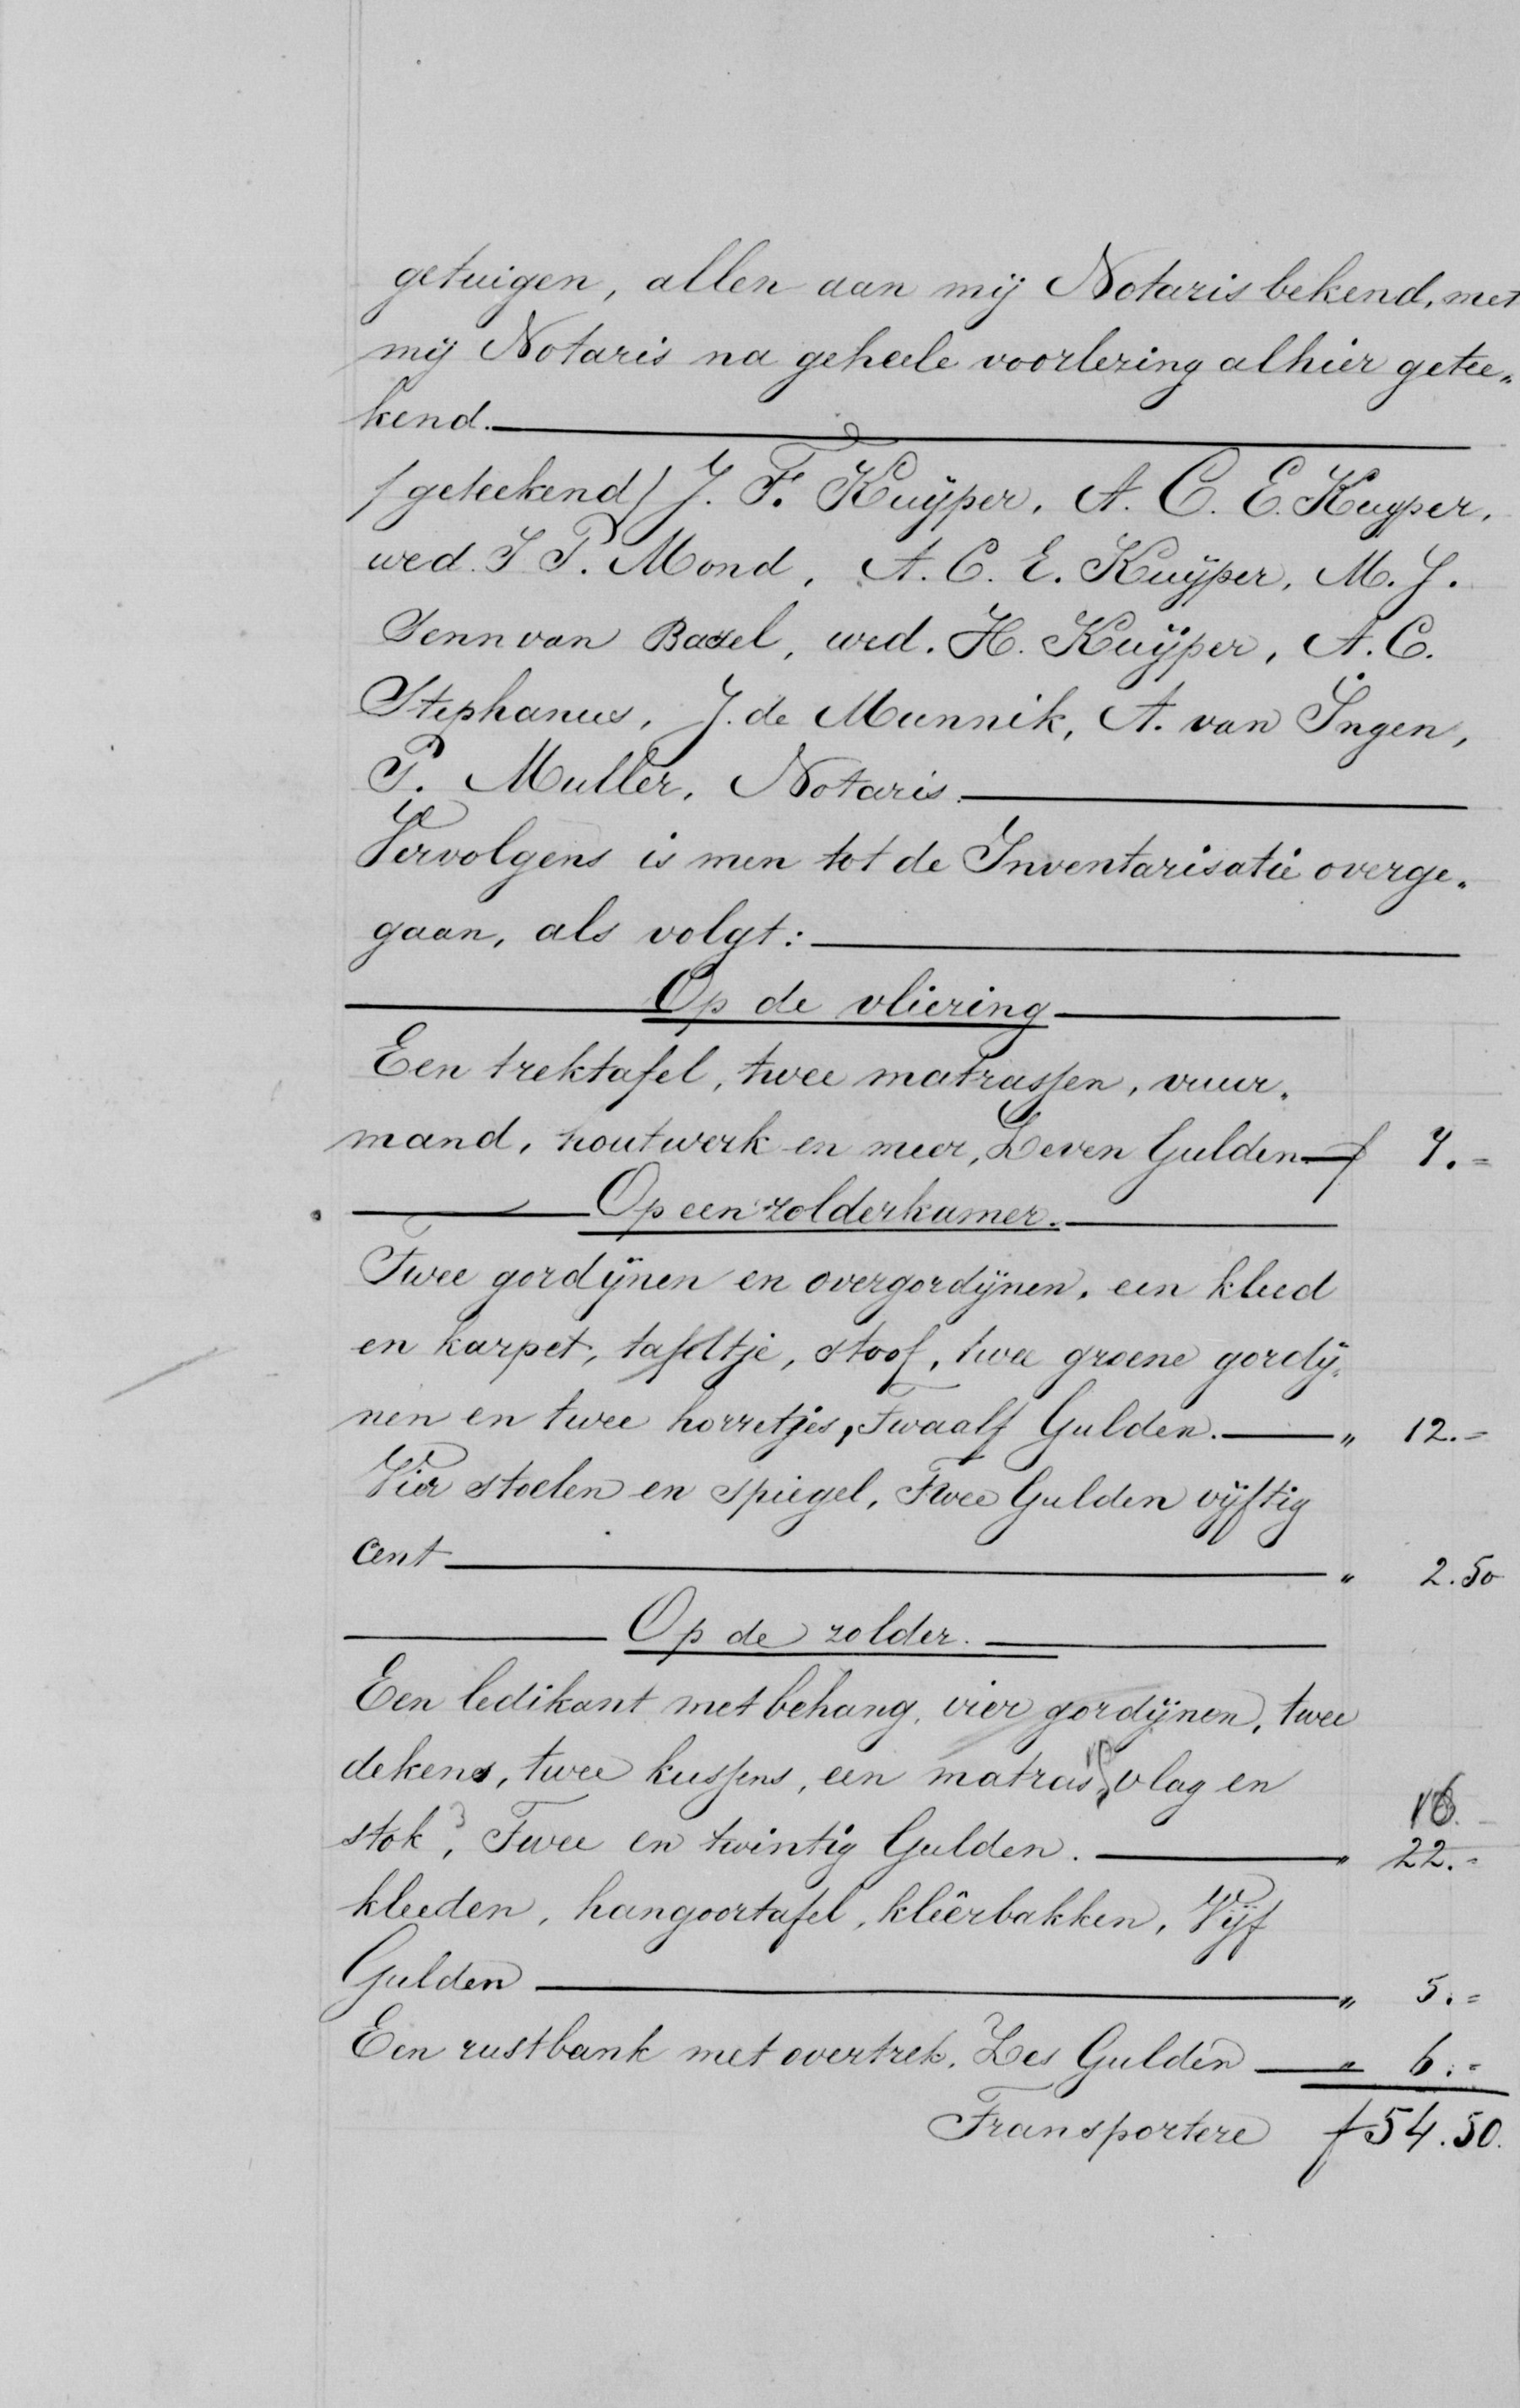 getuigen, allen aan mij Notaris bekend, met
mij Notaris na geheele voorlezing alhier getee„
kend.
(geteekend) J. F. Kuÿper, A. C. E. Kuyper,
wed. J P. Mond, A. C. E. Kuÿper, M. J.
Senn van Basel, wed. H. Kuÿper, A. C.
Stephanus, J. de Munnik, A. van Ingen,
P. Muller, Notaris.
Vervolgens is men tot de Inventarisatie overge„
gaan, als volgt:
Op de vliering
Een trektafel, twee matrassen, vuur„
mand, houtwerk en meer, Zeven Gulden f 7.=
Op een zolderkamer.
Twee gordijnen en overgordijnen, een kleed
en karpet, tafeltje, stoof, twee groene gordij„
nen en twee horretjes, Twaalf Gulden. „ 12.=
Vier stoelen en spiegel, Twee Gulden vijftig
cent „ 2.50
Op de zolder.
Een ledikant met behang, vier gordijnen, twee
dekens, twee kussens, een matras, vlag en
stok, Twee en twintig Gulden. „ 22.=
kleeden, hangoortafel, kleêrbakken, Vijf
Gulden „ 5.=
Een rustbank met overtrek, Zes Gulden „ 6.=
Transportere f 54.50.